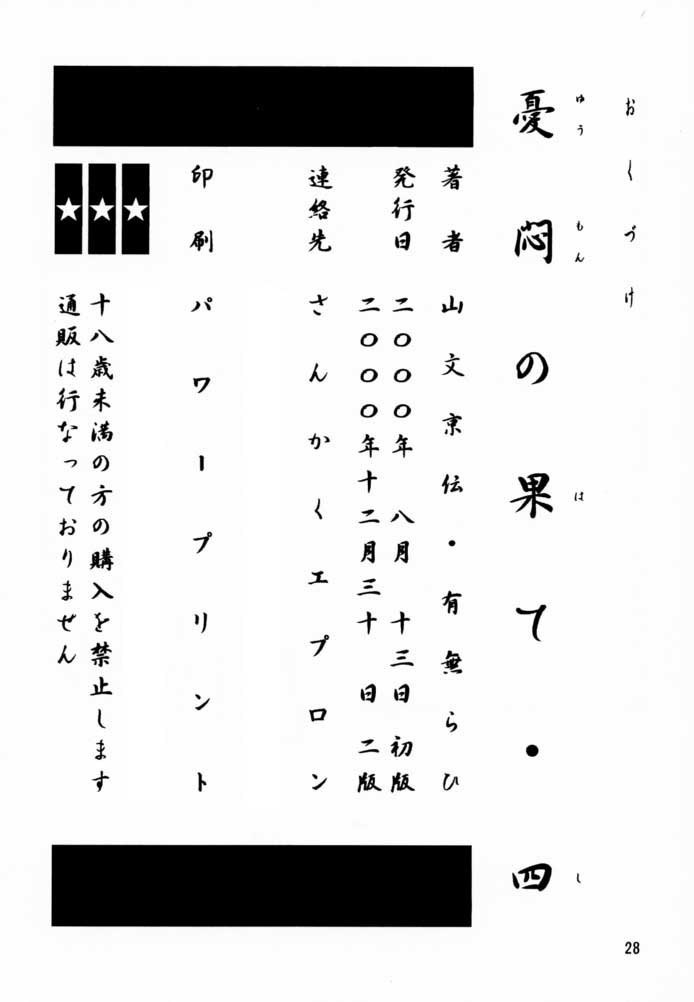 おくづけ
憂悶の果て・四
ゆうもん は し
著者 山文京伝・有無らひ
発行日 二〇〇〇年 八月 十三日 初版
二〇〇〇年十二月三十 日 二版
連絡先 さんかくエプロン
印刷 パワープリント
十八歳未満の方の購入を禁止します
通販は行なっておりません
28